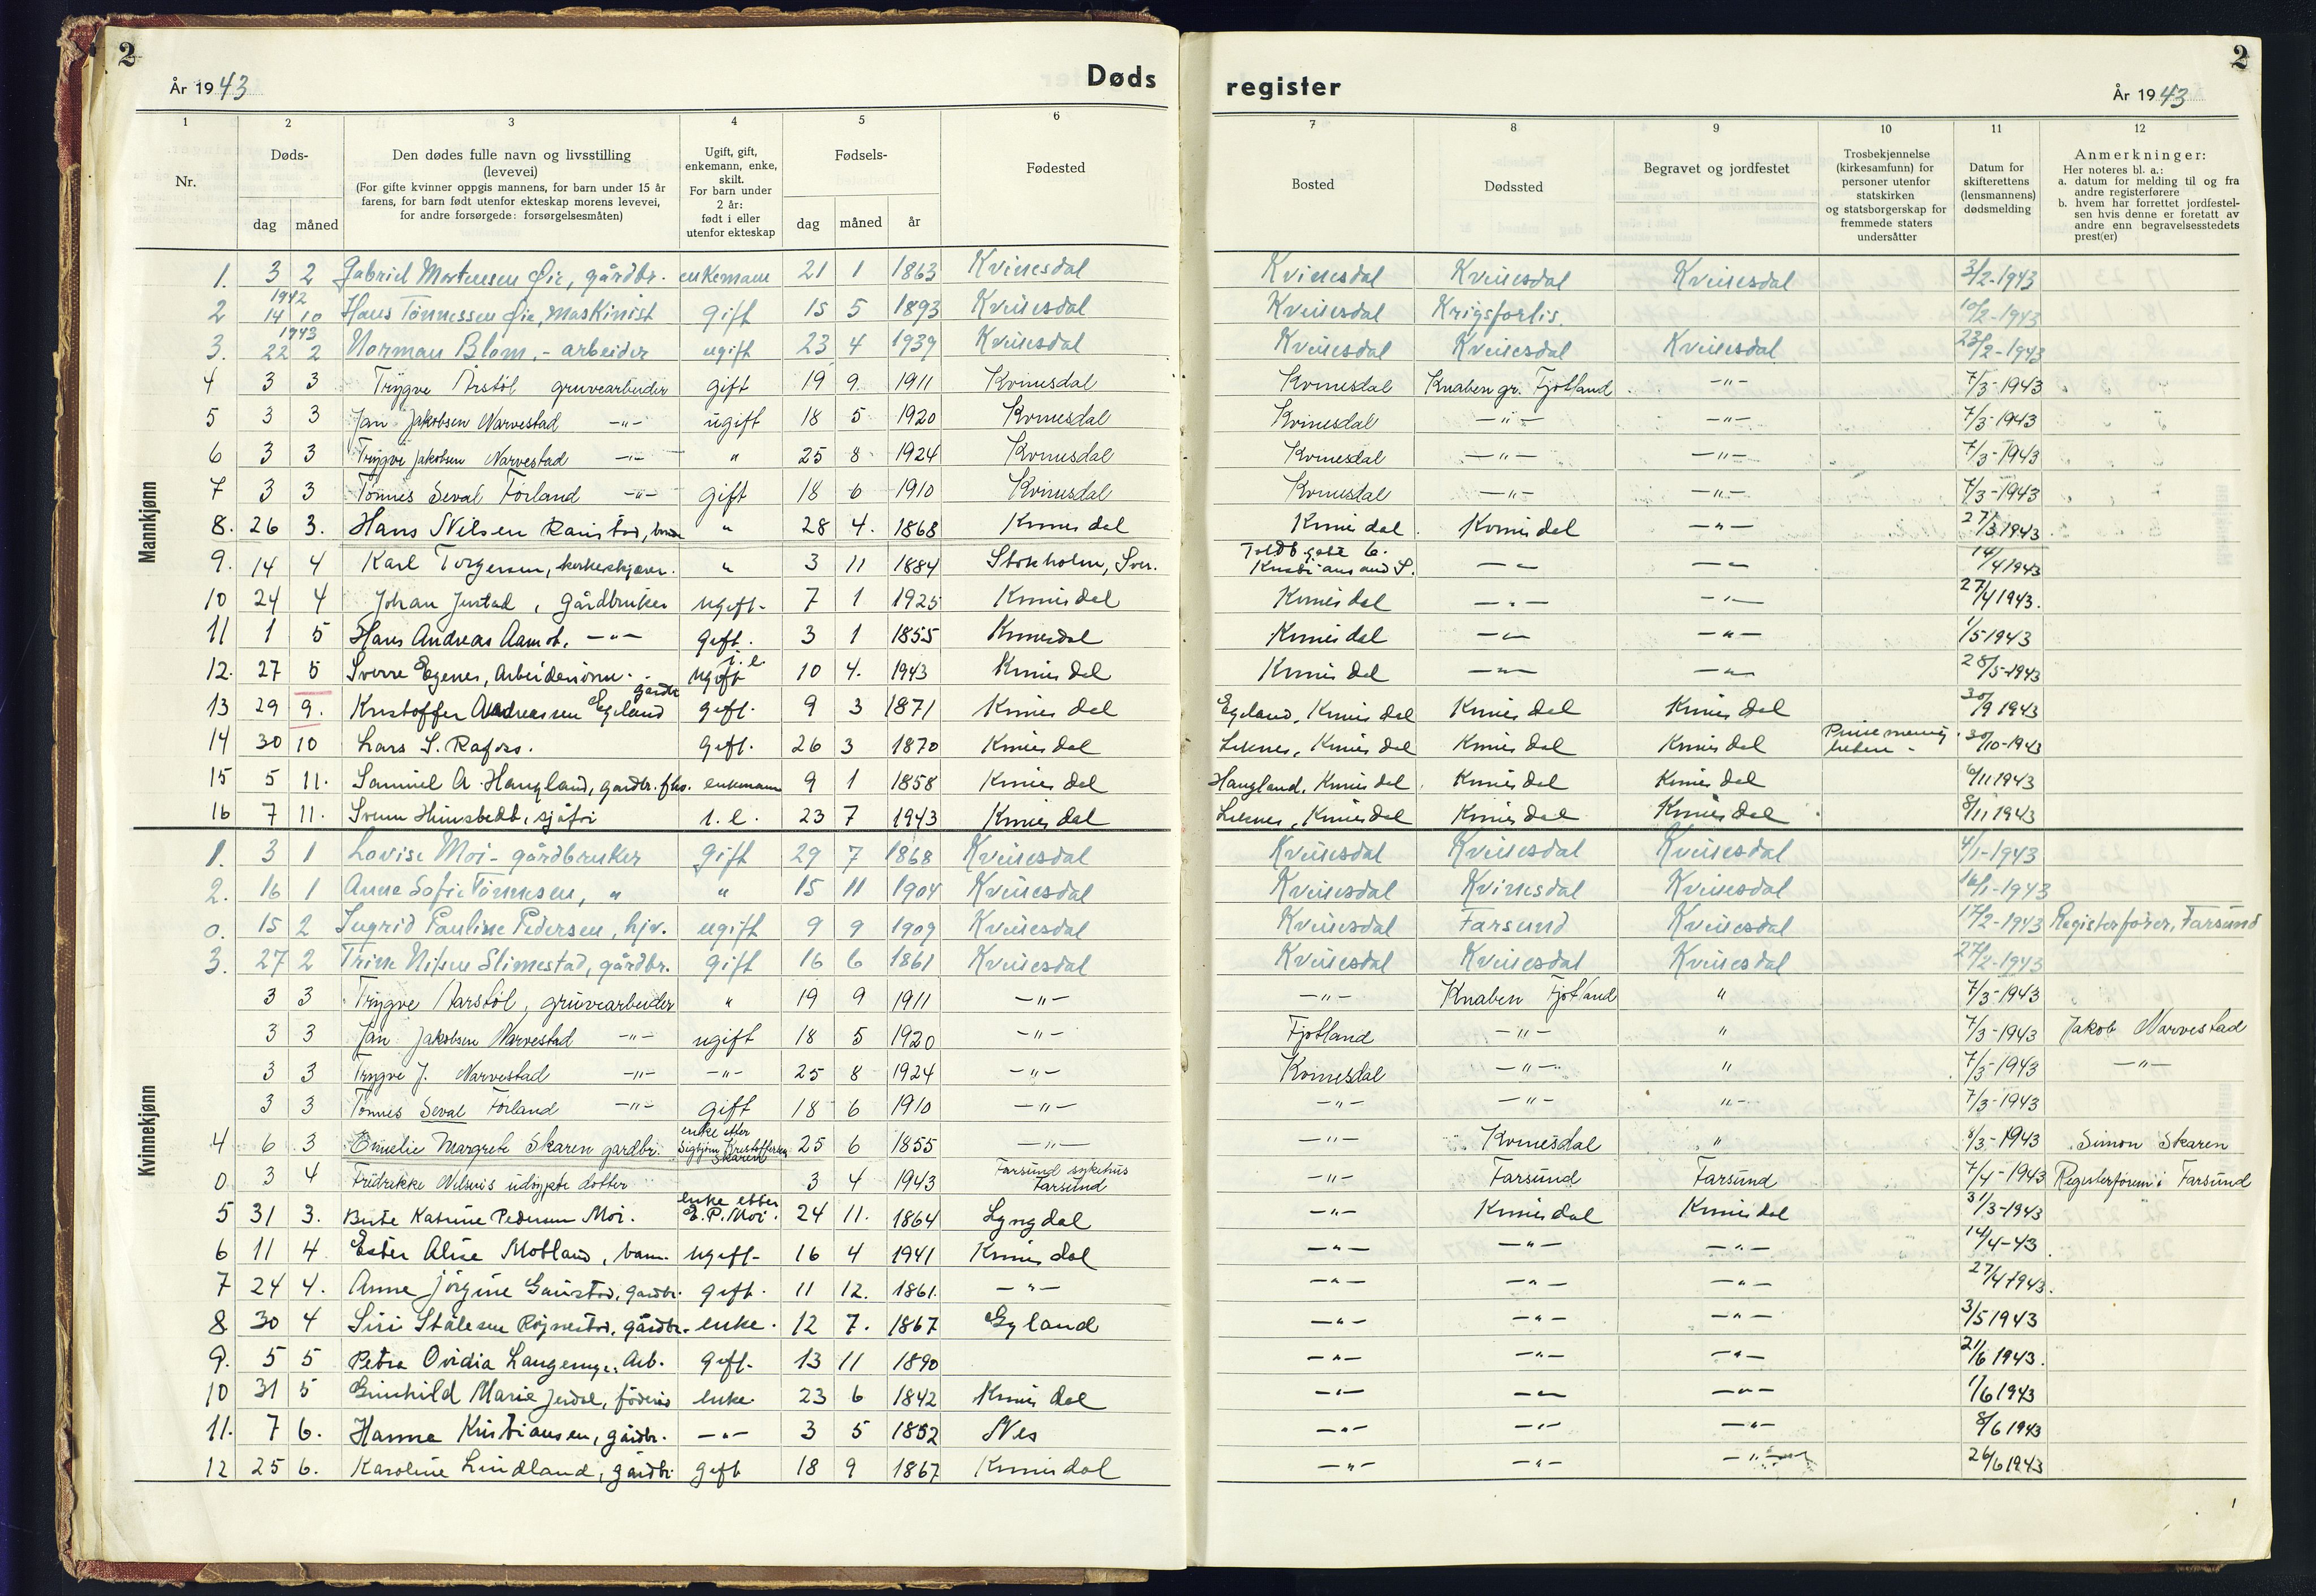 2
År 1943
Døds
register
År 1943
2
1 2 3 4 5 6 7 8 9 10 11 12
Nr.
Døds-
dag måned
Den dødes fulle navn og livsstilling
(levevei)
(For gifte kvinner oppgis mannens, for barn under 15 år
farens, for barn født utenfor ekteskap morens levevei,
for andre forsørgede: forsørgelsesmåten)
Ugift, gift,
enkemann, enke,
skilt.
For barn under
2 år:
født i eller
utenfor ekteskap
Fødsels-
dag måned år
Fødested
Bosted
Dødssted
Begravet og jordfestet
Trosbekjennelse
(kirkesamfunn) for
personer utenfor
statskirken
og statsborgerskap for
fremmede staters
undersåtter
Datum for
skifterettens
(lensmannens)
dødsmelding
Anmerkninger:
Her noteres bl. a.:
a. datum for melding til og fra
andre registerførere
b. hvem har forrettet jordfestel-
sen hvis denne er foretatt av
andre enn begravelsesstedets
prest(er)
Mannkjønn
1. 3 2 Gabriel Mortensen Øie, gårdbr. enkemann 21 1 1863 Kvinesdal Kvinesdal Kvinesdal Kvinesdal 3/2-1943
1942
2 14 10 Hans Tönnessen Øie, maskinist gift 15 5 1893 Kvinesdal Kvinesdal Krigsforlis. 10/2-1943
1943
3. 22 2 Norman Blom, - arbeider ugift 23 4 1939 Kvinesdal Kvinesdal Kvinesdal Kvinesdal 23/2-1943
4 3 3 Trygve Årstöl gruvearbeider gift 19 9 1911 Kvinesdal Kvinesdal Knaben gr. Fjotland -"- 7/3-1943
5 3 3 Jan Jakobsen Narvestad -"- ugift 18 5 1920 Kvinesdal Kvinesdal -"- -"- 7/3-1943
6 3 3 Trygve Jakobsen Narvestad -"- " 25 8 1924 Kvinesdal Kvinesdal -"- -"- 7/3-1943
7 3 3 Tönnes Seval Förland -"- gift 18 6 1910 Kvinesdal Kvinesdal -"- -"- 7/3-1943
8. 26 3. Hans Nilsen " 28 4. 1868 Kvinesdal Kvinesdal Kvinesdal -"- 27/3 1943.
9. 14 4 Karl Torgersen, " 3 11 1884 Stokholm, Sver. Toldb.gate 6. Kristiansand S. -"- -"- 14/4 1943
10 24 4 Johan Jerstad, gårdbruker ugift- 7 1 1925 Kvinesdal Kvinesdal -"- -"- 27/4 1943.
11 1 5 Hans Andreas Aamot, -"- gift. 3 1 1855 Kvinesdal Kvinesdal -"- -"- 1/5 1943
12. 27 5 Sverre Egenes, Arbeidersönn. i.e. ugift 10 4. 1943 Kvinesdal Kvinesdal -"- -"- 28/5-1943
13 29 9. Kristoffer Andreassen Egeland gårdbr gift. 9 3 1871 Kvinesdal Egeland, Kvinesdal Kvinesdal Kvinesdal 30/9 1943
14 30 10 Lars S. Rafoss. gift. 26 3 1870 Kvinesdal Liknes, Kvinesdal Kvinesdal Kvinesdal Pinsemenigheten - 30/10-1943
15 5 11. Samuel A. Haugland, gardbr. fhv. enkemann 9 1 1858 Kvinesdal Haugland, Kvinesdal. Kvinesdal Kvinesdal 6/11 1943
16 7 11. Svenn i.e. 23 7 1943 Kvinesdal Liknes, Kvinesdal Kvinesdal Kvinesdal 8/11 1943
Kvinnekjønn
1. 3 1 Lovise Moi - gårdbruker gift 29 7 1868 Kvinesdal Kvinesdal Kvinesdal Kvinesdal 4/1-1943
2. 16 1 Anne Sofie Tönnesen, " " 15 11 1904 Kvinesdal Kvinesdal Kvinesdal Kvinesdal 16/1-1943
0. 15 2 Ingrid Pauline Pedersen, hjv. ugift 9 9 1909 Kvinesdal Kvinesdal Farsund Kvinesdal 17/2-1943 Registerförer, Farsund
3. 27 2 Trine Nilsen Slimestad, gårdbr. gift 16 6 1861 Kvinesdal Kvinesdal Kvinesdal Kvinesdal 27/2-1943
3 3 Trygve Aarstöl, gruvearbeider " 19 9 1911 -"- -"- Knaben Fjotland " 7/3-1943
3 3 Jan Jakobsen Narvestad -"- ugift 18 5 1920 -"- Fjotland -"- " 7/3-1943 Jakob Narvestad
3 3 Trygve J. Narvestad -"- -"- 25 8 1924 -"- Kvinesdal -"- " 7/3-1943 -"-
3 3 Tönnes Seval Förland -"- gift 18 6 1910 -"- -"- -"- "- 7/3-1943
4 6 3 Emelie Margrete Skaren gardbr. enke etter Sigbjörn Kristoffersen Skaren 25 6 1855 -"- -"- Kvinesdal " 8/3-1943 Simon Skaren
0 3 4 Fredrikke Nilsens udöpte datter 3 4 1943 Farsund sykehus Farsund -"- Farsund Farsund 7/4-1943 Registerföreren i Farsund
5 31 3. Berte Katrine Pedersen Moi. enke etter E.P. Moi. 24 11. 1864 Lyngdal -"- Kvinesdal Kvinesdal 31/3-1943
6 11 4 Ester Alise Motland, barn. ugift- 16 4 1941 Kvinesdal -"- -"- -"- 14/4-43.
7 24 4. Anne Jörgine, gardbr. gift. 11 12. 1861. -"- -"- -"- -"- 27/4 1943.
8. 30 4 Siri Stålesen Röynestad, gårdbr. enke. 12 7. 1867 Gyland -"- -"- -"- 3/5 1943
9. 5 5 Petra Ovidia, Arb. gift- 13 11 1890 -"- -"- -"- 21/6 1943.
10 31 5 Gunhild Marie Jerdal, enke. 23 6 1842 Kvinesdal -"- -"- -"- 1/6 1943
11. 7 6. Hanna Kristiansen, gårdbr. -"- 3 5 1852 Nes -"- -"- -"- 8/6 1943
12 25 6. Karoline Lindland, gårdbr gift 18 9 1867 Kvinesdal -"- -"- -"- 26/6 1943